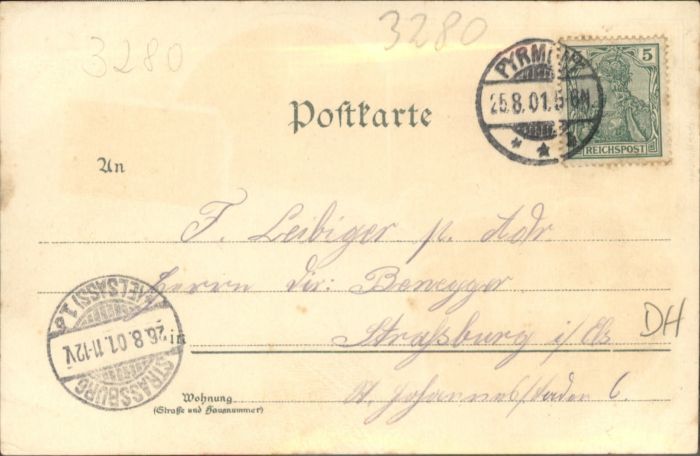 3280
3280
PYRMONT
25.8.01. 5-6N.
5
REICHSPOST
Postkarte
An
F. Leibiger p. Adr.
Herrn Dir: Benegger
Straßburg i/Els
DH
in
St. Johannesstaden 6.
STRASSBURG (ELSASS) 1
26.8.01.11-12V.
Wohnung
(Straße und Hausnummer)